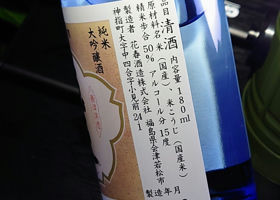 品目 清酒
内容量 180ml
原材料名 米(国産)、米こうじ(国産米)
精米歩合 50% アルコール分 15度
製造者 花春酒造株式会社 福島県会津若松市
神指町大字中四合字小見前24 1
製造年月
純米
大吟醸酒